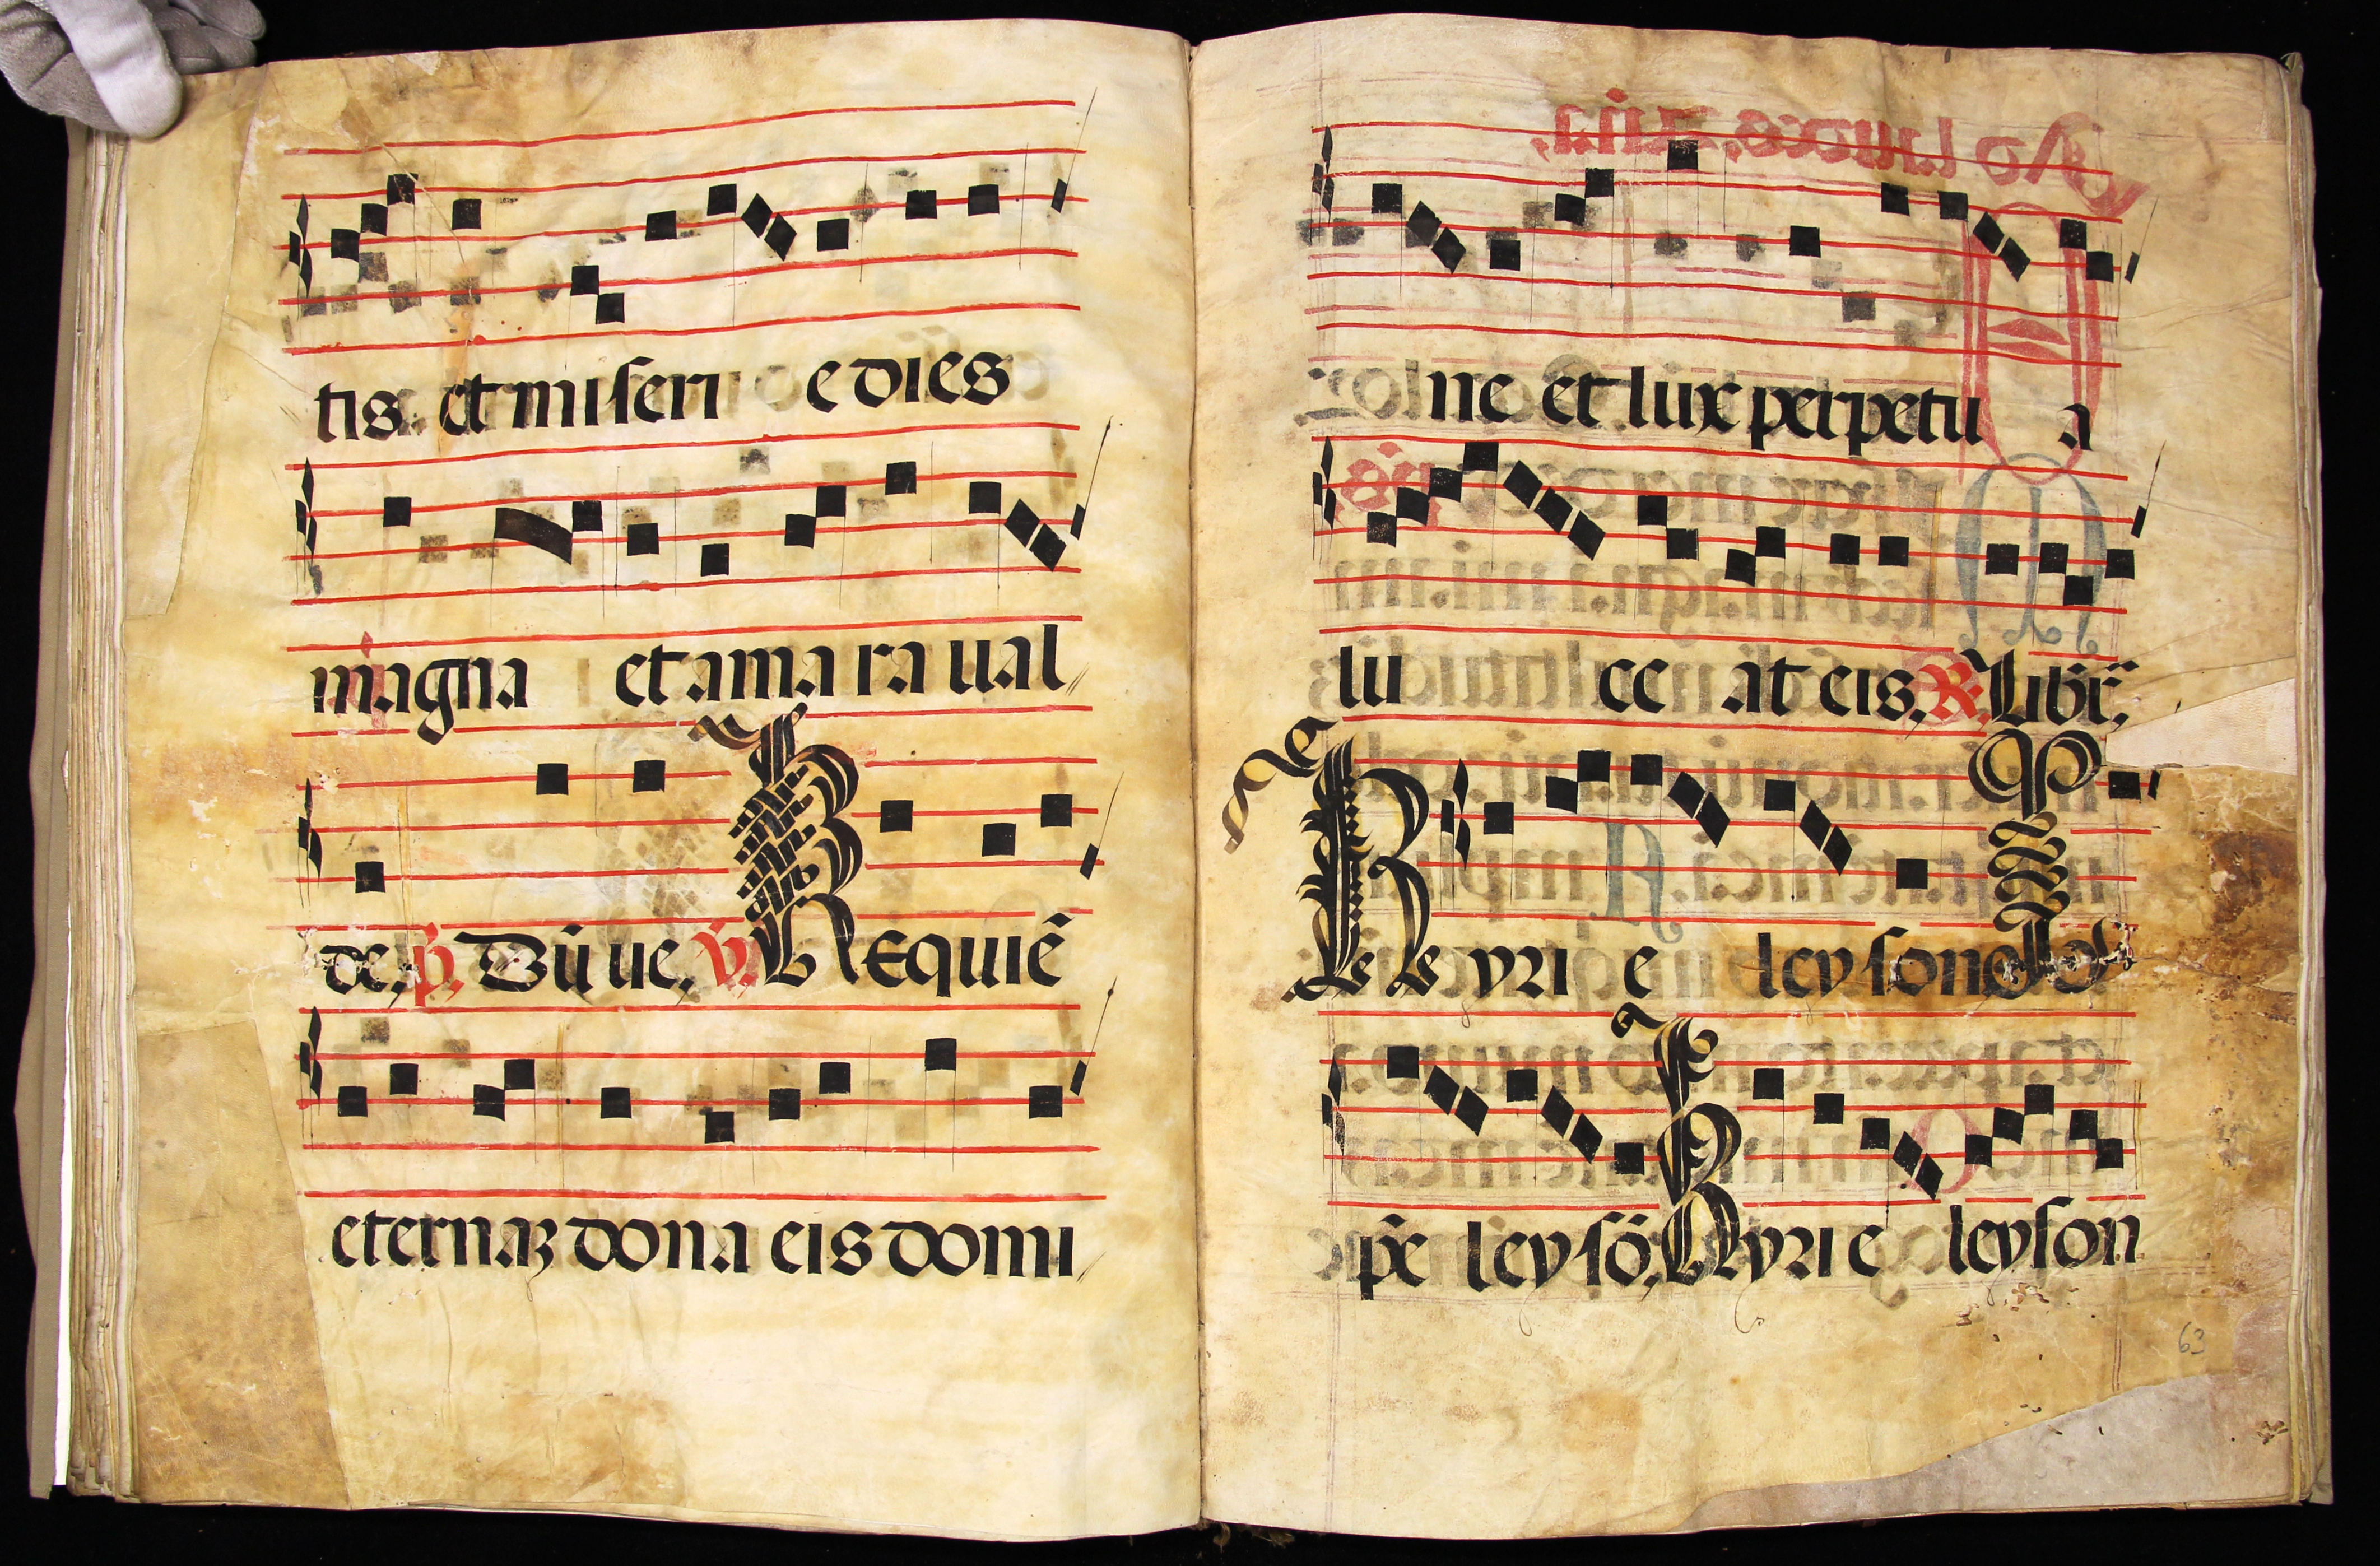 tis. et miseri e dies
magna et amara ual
de, p. Dū ue, v. Requiē
eternaz dona eis domi
ne et lux perpetu a
lu ce at eis, R. Libr̄,
Kyri e leyson
pe leysō, Kyri e leyson
63